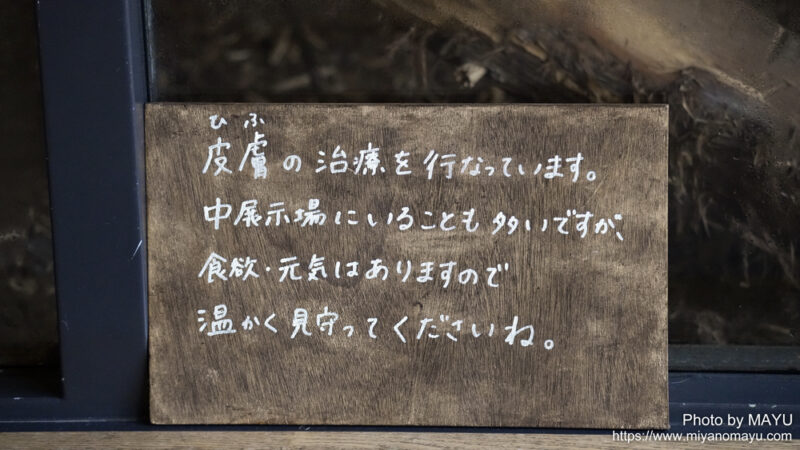 ひふ
皮膚の治療を行なっています。
中展示場にいることも多いですが、
食欲・元気はありますので
温かく見守ってくださいね。
Photo by MAYU
https://www.miyanomayu.com